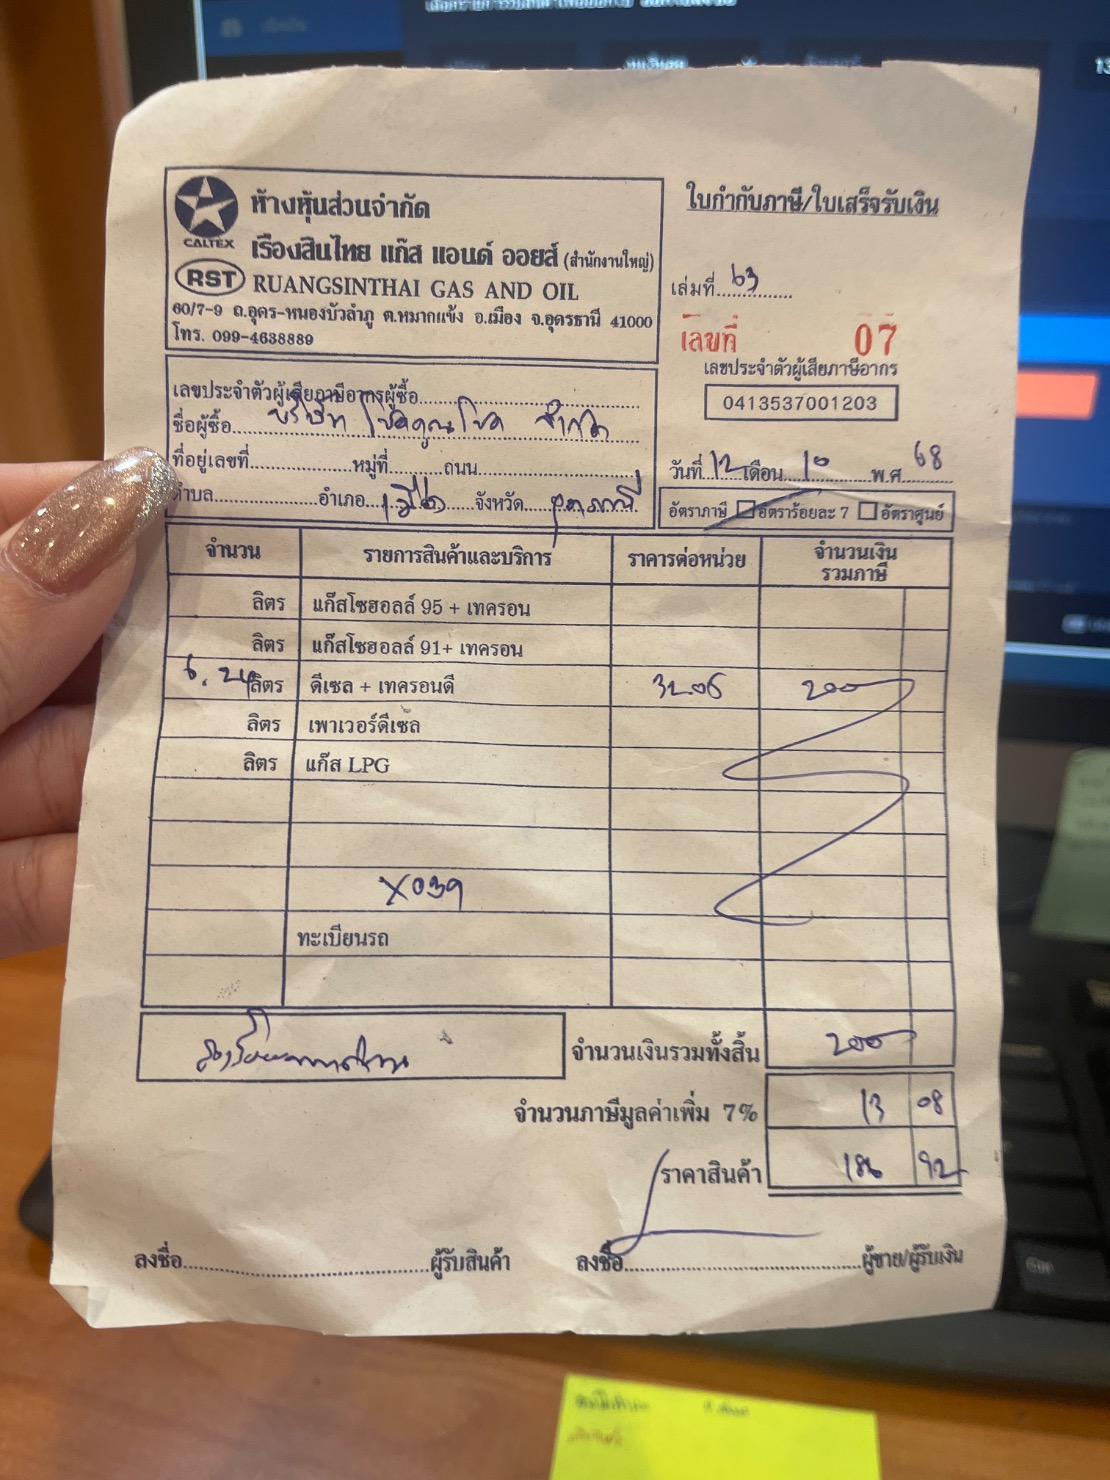 ห้างหุ้นส่วนจำกัด
เรืองสินไทย แก๊ส แอนด์ ออยส์ (สำนักงานใหญ่)
CALTEX
RST RUANGSINTHAI GAS AND OIL
60/7-9 ถ.อุดร-หนองบัวลำภู ต.หมากแข้ง อ.เมือง จ.อุดรธานี 41000
โทร. 099-4638889
ใบกำกับภาษี/ใบเสร็จรับเงิน
เล่มที่ 63
เลขที่ 07
เลขประจำตัวผู้เสียภาษีอากร
0413537001203
เลขประจำตัวผู้เสียภาษีอากรผู้ซื้อ
ชื่อผู้ซื้อ บริษัท โชคคูณโชค จำกัด
ที่อยู่เลขที่ หมู่ที่ ถนน
ตำบล อำเภอ เมือง จังหวัด อุดรธานี
วันที่ 12 เดือน 10 พ.ศ. 68
อัตราภาษี อัตราร้อยละ 7 อัตราศูนย์
จำนวน รายการสินค้าและบริการ ราคาต่อหน่วย จำนวนเงินรวมภาษี
ลิตร แก๊สโซฮอลล์ 95 + เทครอน
ลิตร แก๊สโซฮอลล์ 91+ เทครอน
6.24 ลิตร ดีเซล + เทครอนดี 3206 200
ลิตร เพาเวอร์ดีเซล
ลิตร แก๊ส LPG
X039
ทะเบียนรถ
สองร้อยบาทถ้วน
จำนวนเงินรวมทั้งสิ้น 200
จำนวนภาษีมูลค่าเพิ่ม 7% 13 08
ราคาสินค้า 186 92
ลงชื่อ ผู้รับสินค้า
ลงชื่อ ผู้ขาย/ผู้รับเงิน